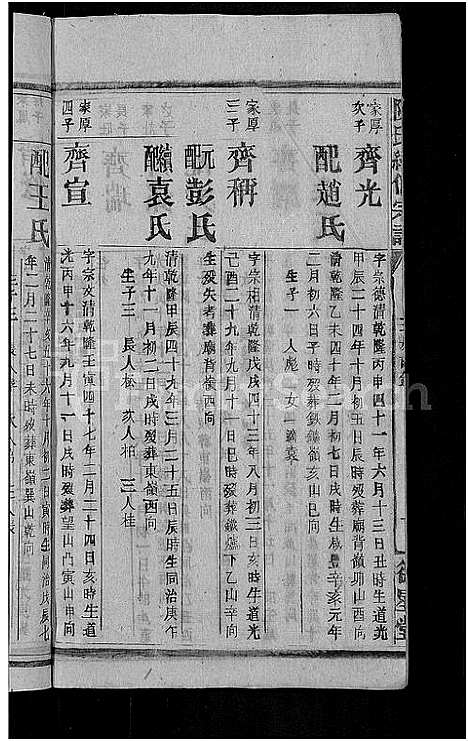 陳氏續修宗譜
家厚次子
齊光
字宗德清乾隆丙申四十一年六月十三日丑時生道光
甲辰二十四年十月初二日辰時歿葬廟背嶺卯山酉向
配趙氏
清乾隆乙未四十年二月初七日戌時生咸豐辛亥元年
二月初六日子時歿葬鉄嶺亥山巳向
生子一 人彪 女一 適袁
家厚三子
齊稱
字宗柱清乾隆戊戌四十三年八月初三日亥時生道光
己酉二十九年九月十一日巳時歿葬鐵爐下乙山辛向
元配彭氏
生歿失考葬廟背嶺西向
繼配袁氏
清乾隆甲辰四十九年三月二十五日辰時生同治庚午
九年十一月初二日戌時歿葬東嶺西向
生子三 長人松 次人柏 三人桂
家厚四子
齊宣
字宗文清乾隆壬寅四十七年二月二十四日亥時生道
光丙申十六年九月十一日戌時歿葬望山凸寅山申向
配王氏
清乾隆辛亥五十六年十月初二日寅時生同治戊辰七
年二月二十七日未時歿葬東嶺巽山乾向